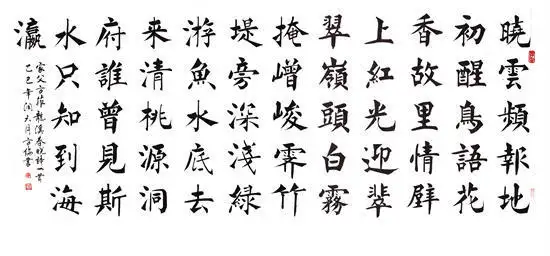 曉雲頻報地
初醒鳥語花
香故里情壁
上紅光迎翠
翠嶺頭白霧
掩嶒峻霽竹
堤旁深淺綠
游魚水底去
来清桃源洞
府誰曾見斯
水只知到海
瀛
家父方龍溪春曉詩一首
乙巳年潤六月方梅書